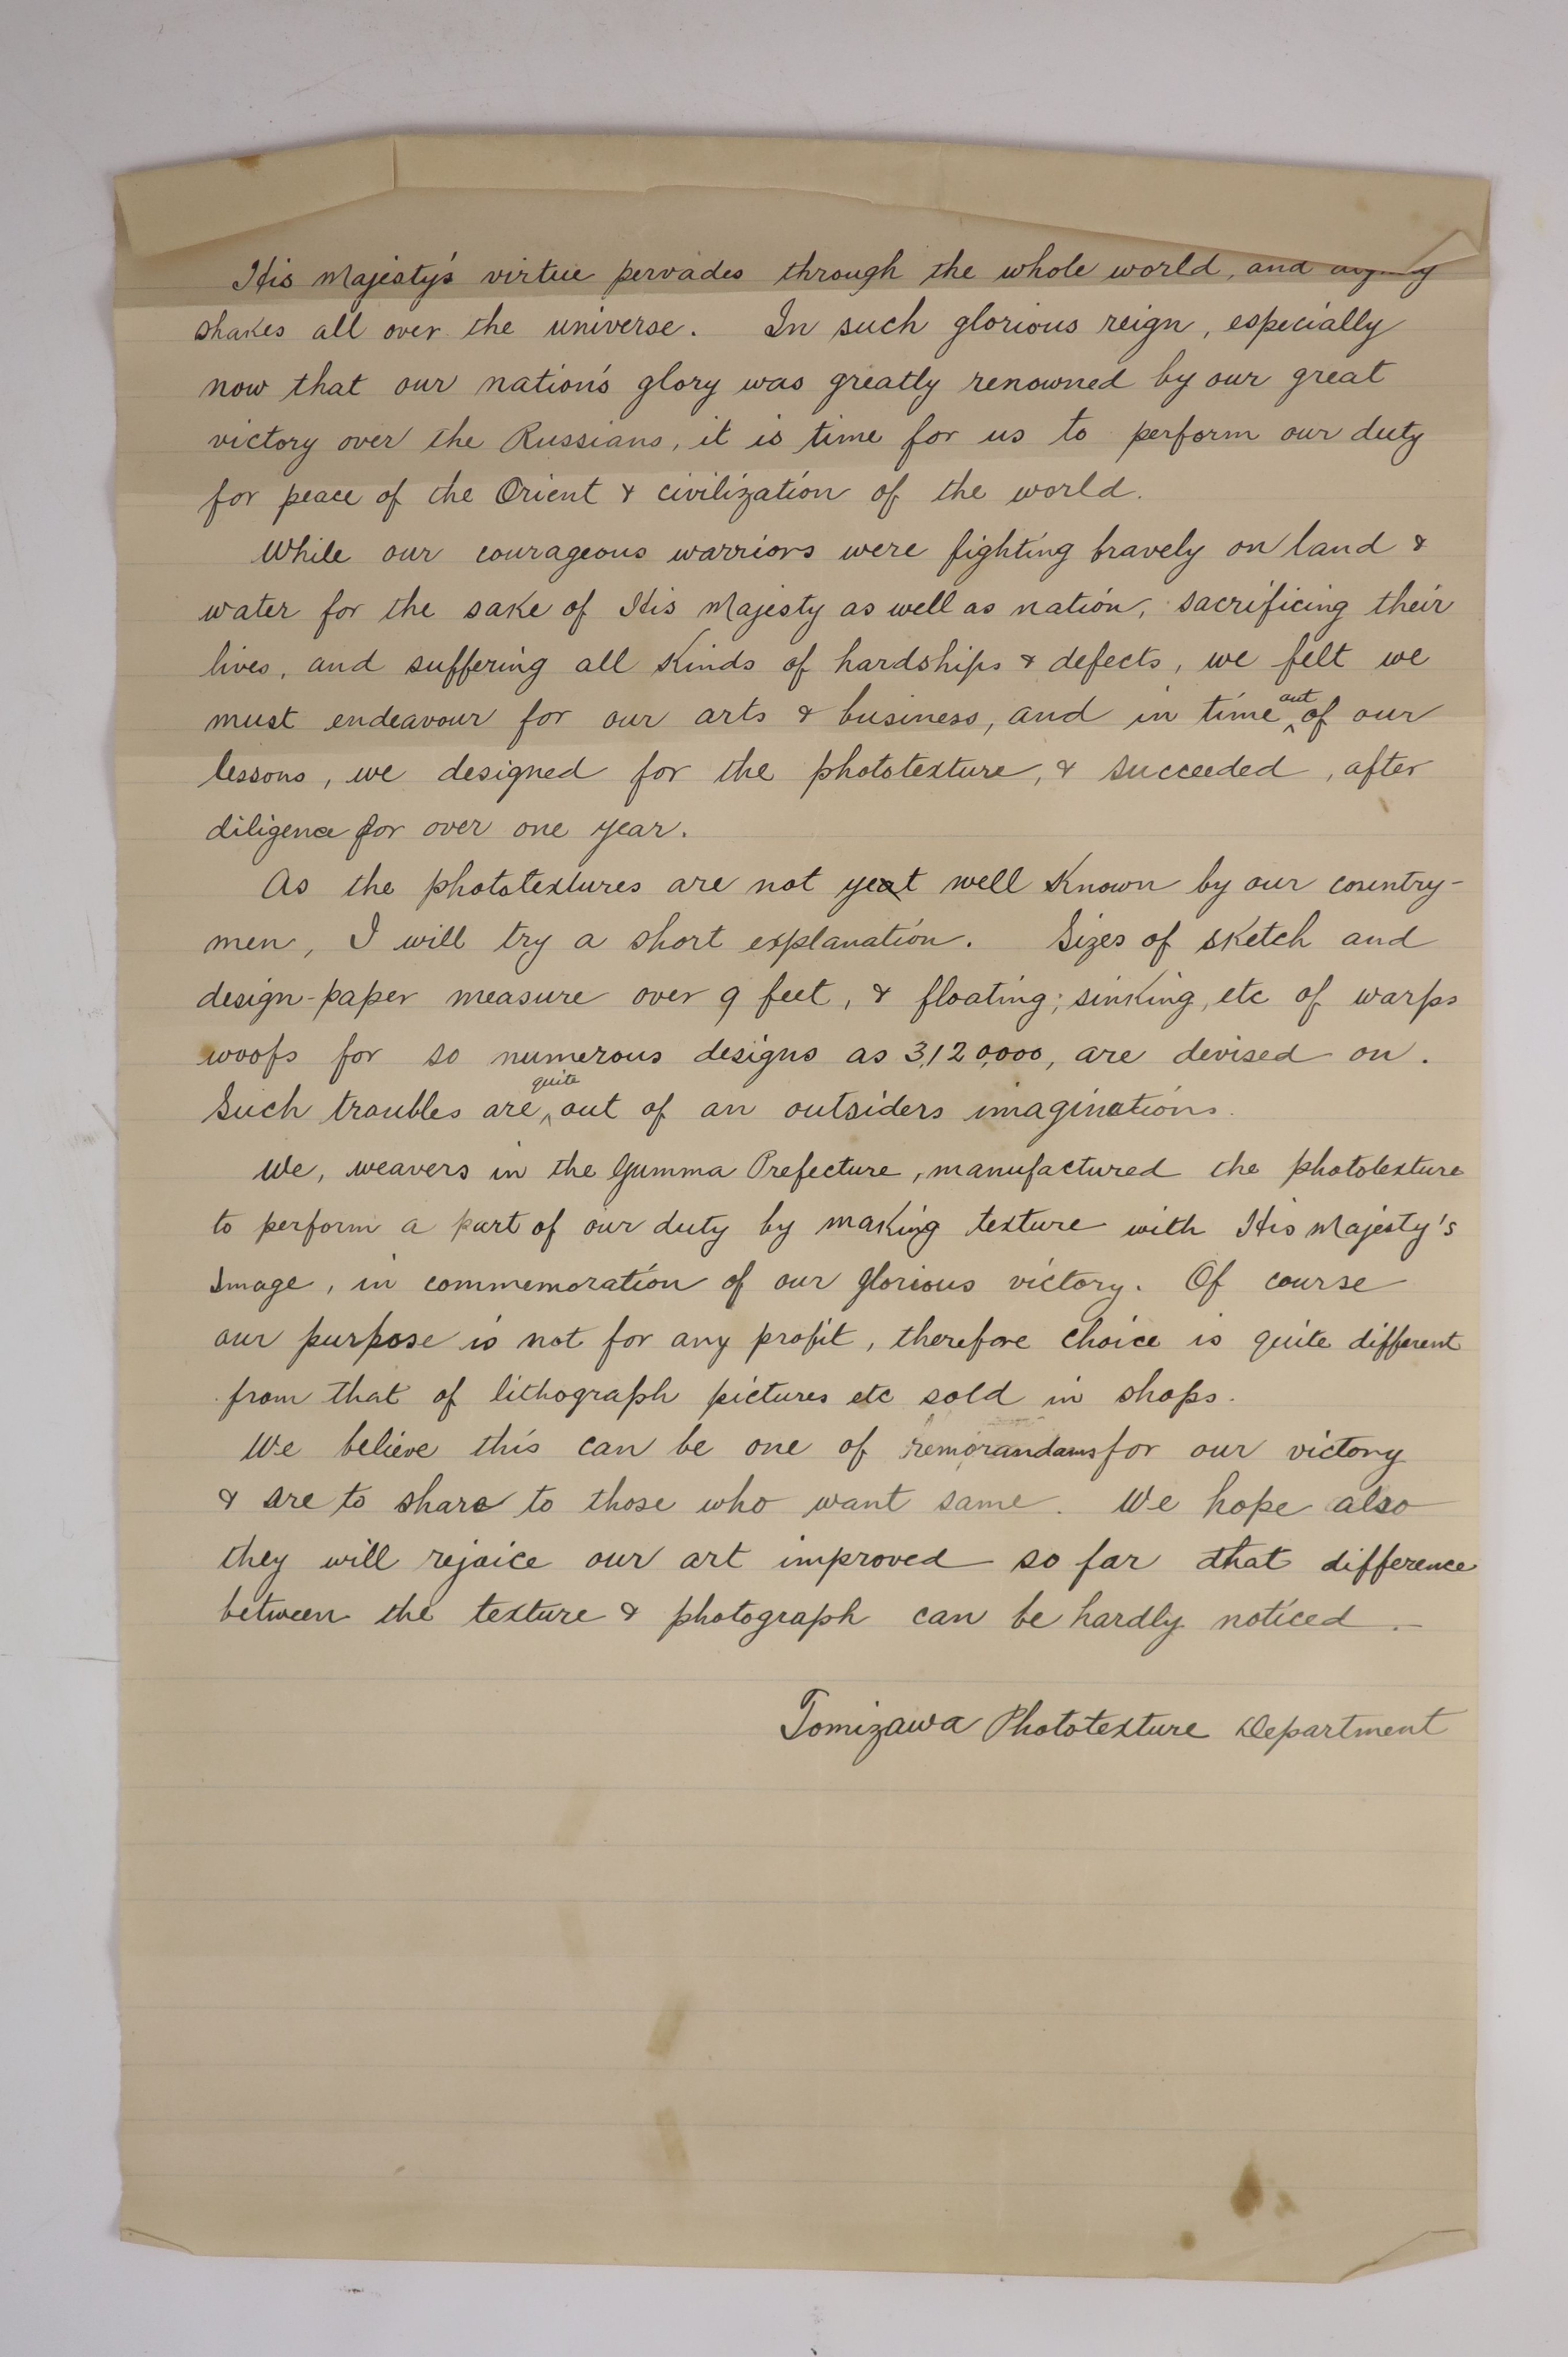 His Majesty's virtue pervades through the whole world, and
shakes all over the universe. In such glorious reign, especially
now that our nation's glory was greatly renowned by our great
victory over the Russians, it is time for us to perform our duty
for peace of the Orient & civilization of the world.
While our courageous warriors were fighting bravely on land &
water for the sake of His Majesty as well as nation, sacrificing their
lives, and suffering all kinds of hardships & defects, we felt we
must endeavour for our arts & business, and in time out of our
lessons, we designed for the phototexture, & succeeded, after
diligence for over one year.
As the phototextures are not yet well known by our country-
men, I will try a short explanation. Sizes of sketch and
design-paper measure over 9 feet, & floating; sinking, etc of warps
woofs for so numerous designs as 3,120,000, are devised on.
Such troubles are quite out of an outsiders imaginations.
We, weavers in the Gumma Prefecture, manufactured the phototexture
to perform a part of our duty by making texture with His Majesty's
Image, in commemoration of our glorious victory. Of course
our purpose is not for any profit, therefore choice is quite different
from that of lithograph pictures etc sold in shops.
We believe this can be one of remorandams for our victory
& are to share to those who want same. We hope also
they will rejoice our art improved so far that difference
between the texture & photograph can be hardly noticed.-
Tomizawa Phototexture Department